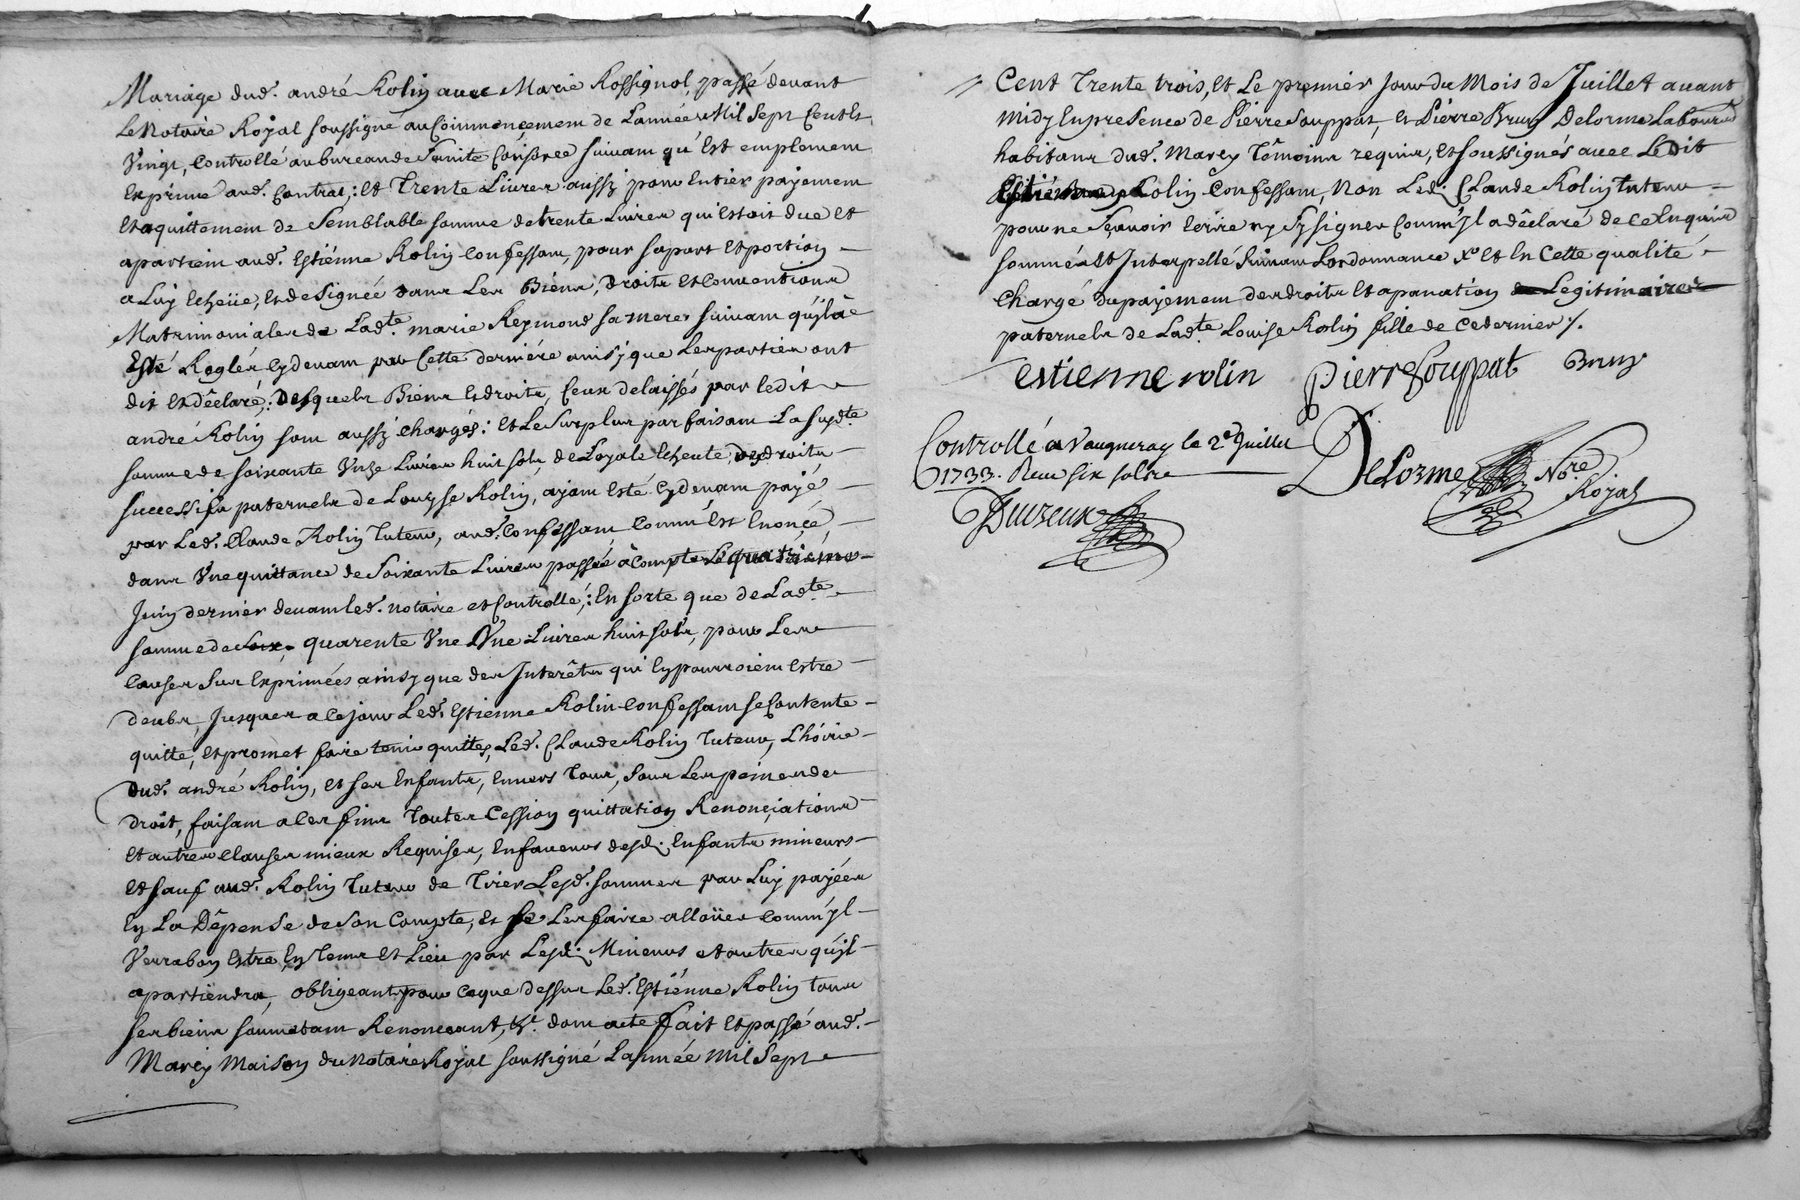 Mariage dud. andré Rolin avec Marie Rossignol, passé devant
Le Notaire Royal soussigné au Commencement de Lannée Mil Sept Cents
Vingt, Controllé au bureau de suivant qu'Est emplement
Exprimé aud. Contrat; Et Trente Livres aussy pour Entier payement
Et aquittement de Semblable somme de trente Livres qu'Estoit due Et
apartient aud. Estiénne Rolin Confessant, pour sa part Et portion
a Luy Echeüe, Et designée dans Les Biéns, Droits Et Conventions
Matrimoniales de Ladte. marie Reymond sa mere suivant qu'ila
Esté Reglér Cydevant par Cette derniére ainsy que Les parties ont
dit Et déclaré; Desquels Biens Et droits, Ceux delaissés par Ledit
andré Rolin sont aussy chargés: Et Le Surplus parfaisant La susdte.
somme de soixante Unze Livres huit sols, de Loyale Echeute, des droits
successifs paternels de Louyse Rolin, ayant Esté Cydevant payé
par Led. Claude Rolin Tuteur, aud. Confessant, Comm'Est Enoncé
dans Une quittance de Soixante Livres passée à Compte Le quatriéme
Juin dernier devant Led. Notaire et Controllé; En sorte que de Ladte.
somme de quarente Vne Vne Livres huit sols, pour Les
Causes Sus Exprimées ainsy que des Interêts qui En pourroient Estre
deubs, Jusques a Ce jour Led. Estienne Rolin Confessant se Contente
quitte, Et promet faire tenir quittes, Led. Claude Rolin Tuteur, L'hoirie
Dud. andré Rolin, Et ses Enfants, Envers Tous, Sous Les peines de
droit, faisant a Ces fins Toutes Cession quittation Renonçiations
Et autres Clauses mieux Requises, En faveurs desd. Enfants mineurs
Et sauf aud. Rolin Tuteur de Tirer Lesd. sommes par Luy payées
En La Dépense de Son Compte, Et se Les faire alloüer Comm'yl
Verra bon Estre En Tems Et Lieu par Lesd. Mineurs et autres qu'yl
apartiendra, obligeant pour Ce que dessus Led. Estiénne Rolin tous
ses biens soumettant Renonçeant, &c. dont acte fait Et passé aud.
Marcy Maison du Notaire Royal soussigné L'année Mil Sept
Cent Trente trois, Et Le premier Jour du Mois de Juillet avant
midy En presence de Pierre Souppat, Et Pierre Brun Delorme Laboureurs
habitans dud. Marcy Témoins requis, Et soussignés avec Ledit
Rolin Confessant, Non Led. Claude Rolin Tuteur
pour ne Sçavoir Ecrire ny Signer Comm'yl a déclaré de Ce Enquis
sommé Et Interpellé Suivant Lordonnance Et En Cette qualité
Chargé du payement des droits Et apanation Legitimaires
paternels de Ladte. Louise Rolin fille de Ce dernier ./.
estienne rolin Pierre Souppat Brun
Controllé a Vaugneray le 2e Juillet
1733. Reçu six sols
Delorme Nore. Royal